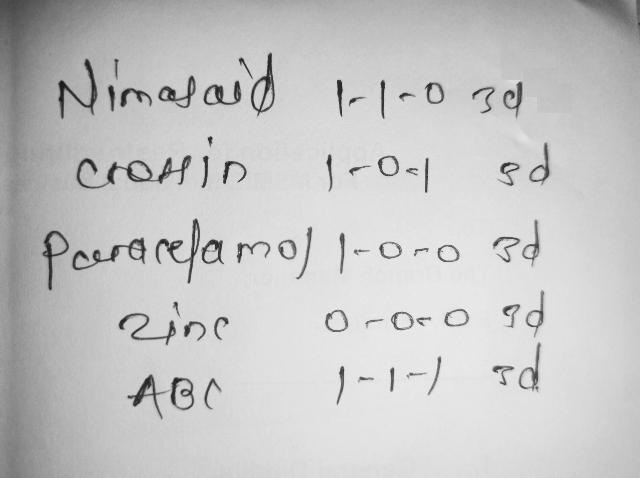 Nimasaid 1-1-0 3d
crosin 1-0-1 3d
Paracetamol 1-0-0 3d
Zinc 0-0-0 3d
ABC 1-1-1 3d